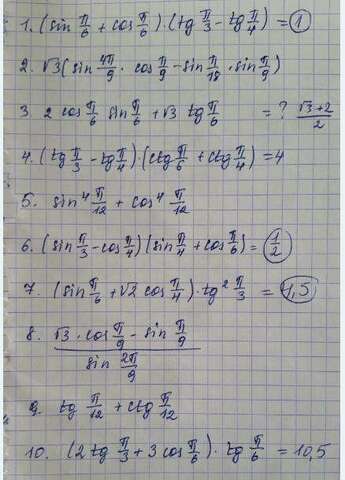 1. (sin π/6 + cos π/6) · (tg π/3 - tg π/4) = 1
2. √3(sin 4π/9 · cos π/9 - sin π/18 · sin π/9)
3. 2 cos π/6 sin π/6 + √3 tg π/6 = ? (√3+2)/2
4. (tg π/3 - tg π/4) · (ctg π/6 + ctg π/4) = 4
5. sin⁴ π/12 + cos⁴ π/12
6. (sin π/3 - cos π/4)(sin π/4 + cos π/6) = 1/2
7. (sin π/6 + √2 cos π/4) · tg² π/3 = 4,5
8. (√3 · cos π/9 - sin π/9) / (sin 2π/9)
9. tg π/12 + ctg π/12
10. (2 tg π/3 + 3 cos π/6) · tg π/6 = 10,5